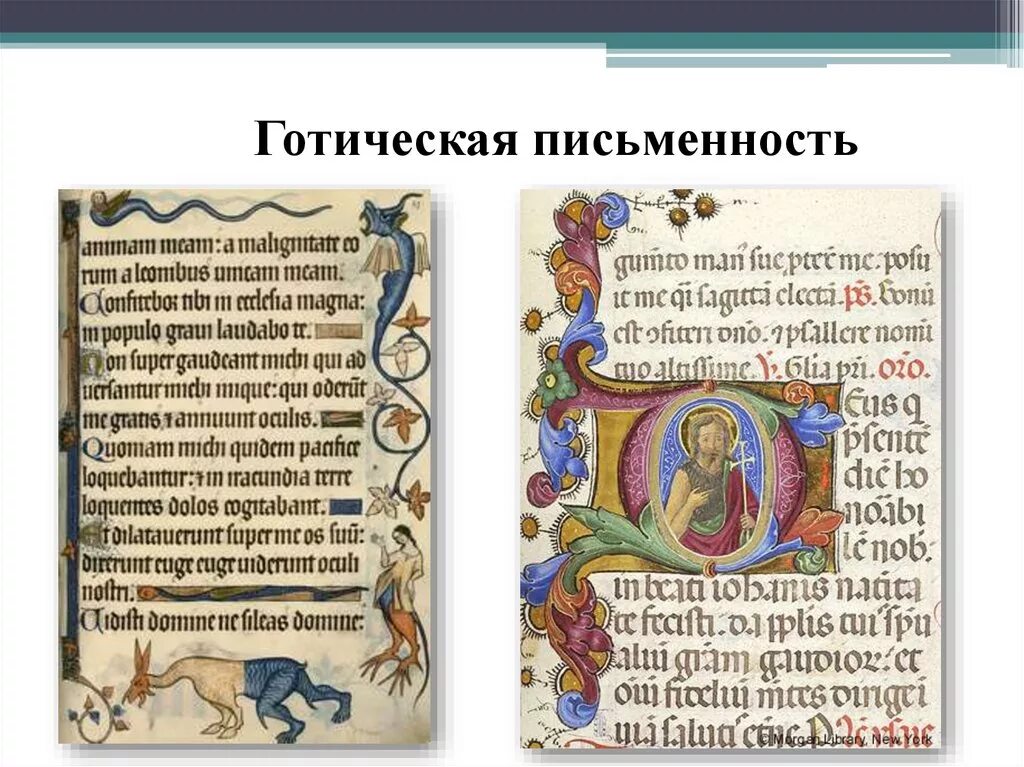 Готическая письменность
animam meam: a malignitate eo
rum a leonibus unicam meam.
Confitebor tibi in ecclesia magna:
in populo gravi laudabo te.
Non super gaudeant michi qui ad
versantur michi inique: qui oderūt
me gratis ⁊ annuunt oculis.
Quoniam michi quidem pacifice
loquebantur: ⁊ in iracundia terre
loquentes dolos cogitabant.
Et dilataverunt super me os suū:
dixerunt euge euge viderunt oculi
nostri.
Vidisti domine ne sileas domine:
me. posu
it me q̄i sagittā electā. p̄s. Bonū
est ꝯfiteri dn̄o. ⁊ psallere nomī
tuo altissime. V. Gl̄ia pr̄i. or̄o.
Eus q
p̄sentē
diē ho
nōabī
lē nob.
in beati iohanis nativita
te fecisti. da pp̄lis tuis sp̄u
aliū gr̄am gaudior: et
oīū fideliū mētes dirige ī
viā salutis
© Morgan Library, New York